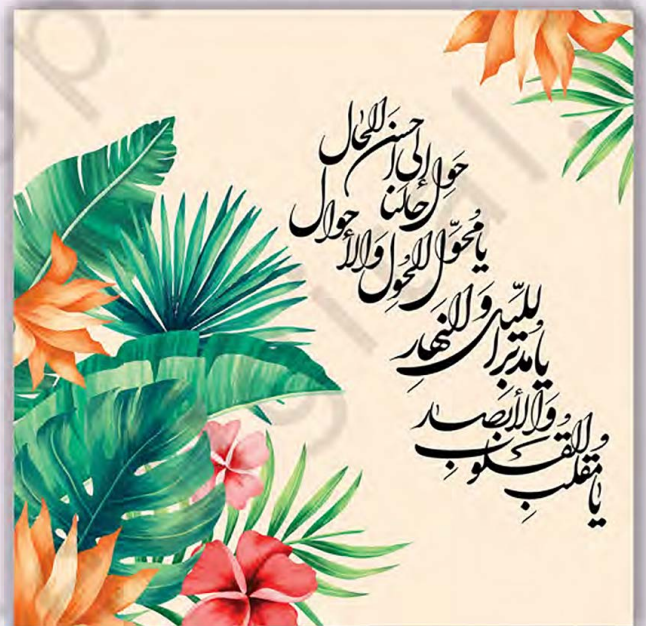 يا مقلب القلوب والأبصار
يا مدبر الليل والنهار
يا محوّل الحول والأحوال
حوّل حالنا إلى احسن الحال